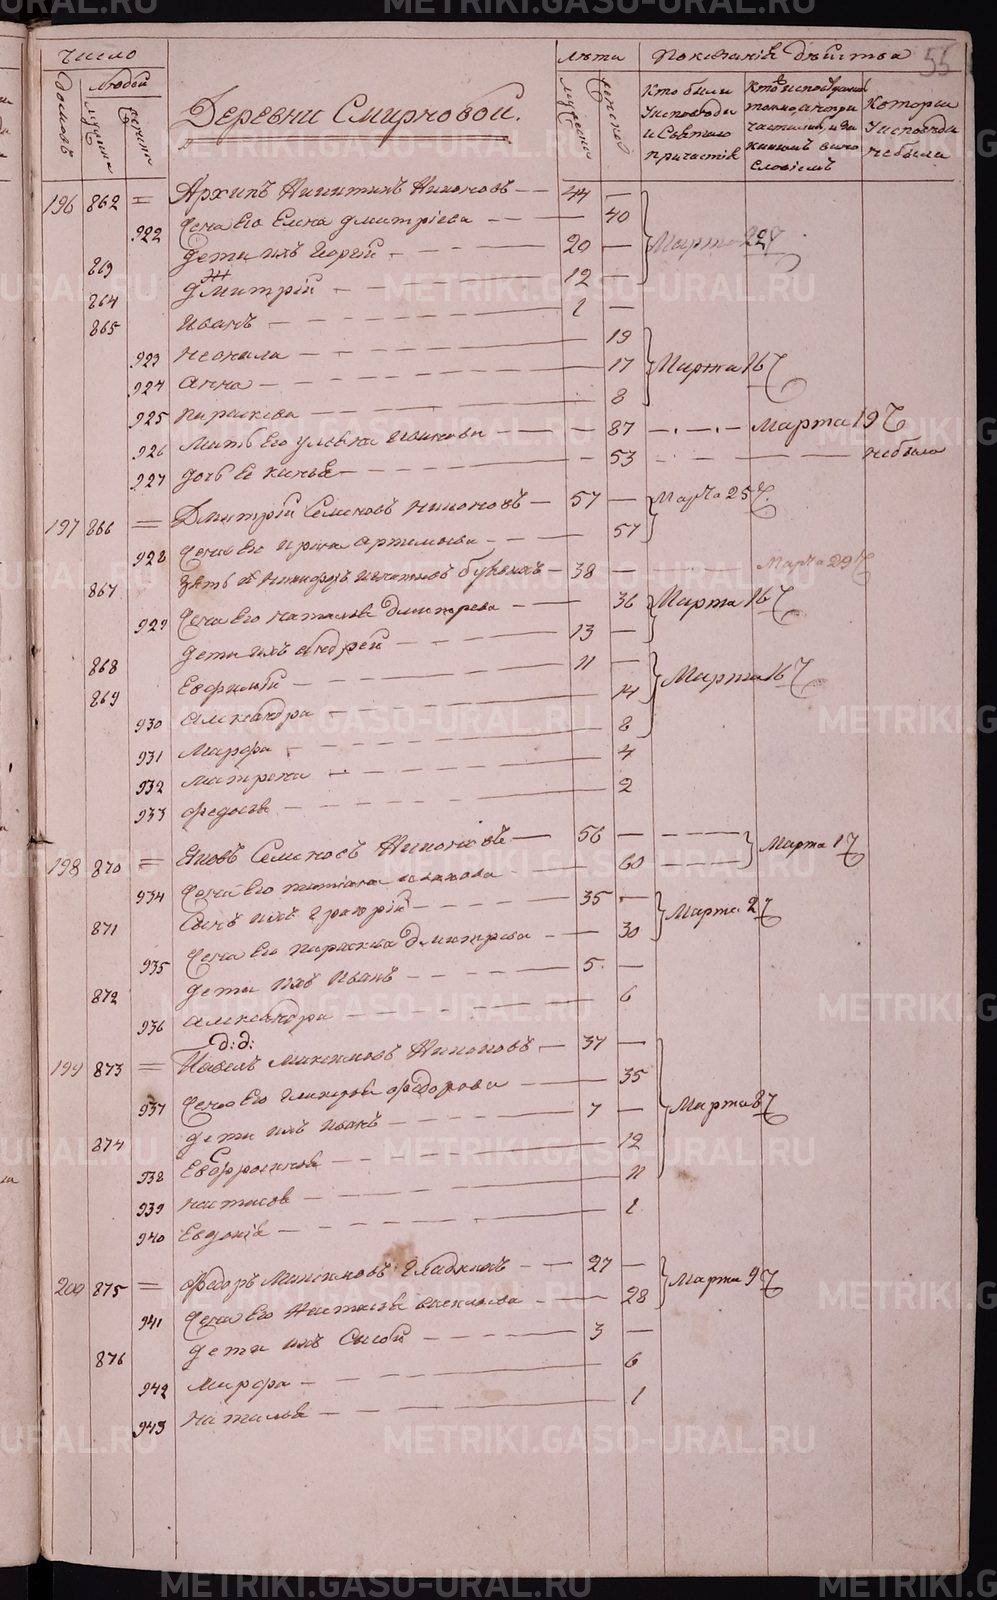 55
Число
домовъ
Людей
мужска
женска
Деревни Смирновой.
Лѣта
мужска
женска
Показаніе дѣйства
Кто были
Уисповѣди
и Святаго
причастія
Кто исповѣдалися
токмо, а не при
частились, и за
какимъ вино
словіемъ
Которыя
Уисповѣди
небыли
196 862 = Архипъ Никитинъ Никоновъ 44 —
922 Жена Его Елена Дмитріева 40
863 дети ихъ Георгій 20 — Марта 22
864 Дмитрій 12 —
865 Иванъ 1 —
923 Неонила 19
924 Анна 17 Марта 16
925 Параскева 8
926 Мать Его Улевка Иванова 87 Марта 19
927 дочь Ея 53 небыла
197 866 = Дмитрій Семеновъ Никоновъ 57 — Марта 25
928 Жена Его Ирина Артемьева 57
867 Зять Никифоръ Игнатьевъ 38 — Марта 29
929 Жена Его Наталья Дмитрева 36 Марта 16
868 дети ихъ Андрей 13 —
869 Евфимій 11 — Марта 16
930 Александра 14
931 Марфа 8
932 Матрена 4
933 Федосья 2
198 870 = Яковъ Семеновъ Никоновъ 56 — Марта 17
934 Жена Его Татіана Иванова 60
871 Сынъ ихъ Григорій 35 — Марта 2
935 Жена Его Параскева Дмитрева 30
872 дети ихъ Иванъ 5 —
936 Александра 6
д: д:
199 873 = Павелъ Максимовъ Никоновъ 37 —
937 Жена Его Гликерья Федорова 35 Марта 8
874 дети ихъ Иванъ 7 —
938 Евфросинья 12
939 Настасья 11
940 Евдокія 1
200 875 = Федоръ Максимовъ Гладкихъ 27 — Марта 9
941 Жена Его Настасья Васильева 28
876 дети ихъ Савва 3 —
942 Марфа 6
943 Наталья 1
METRIKI.GASO-URAL.RU